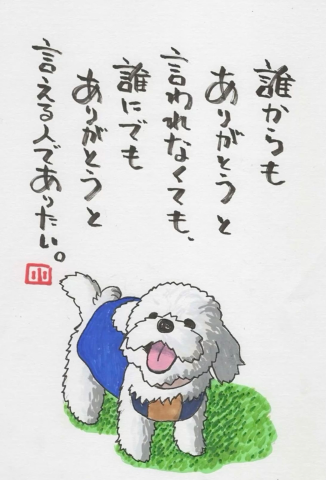 誰からも
ありがとうと
言われなくても、
誰にでも
ありがとうと
言える人でありたい。
小